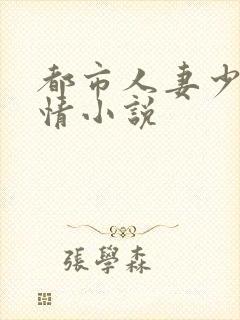 都市人妻少
情小説
張學森